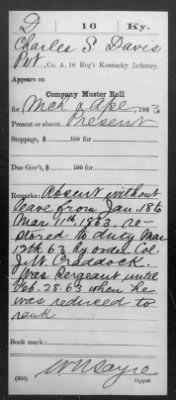 D | 16 | Ky.
Charles S. Davis
Pvt, Co. A, 16 Reg't Kentucky Infantry.
Appears on
Company Muster Roll
for Mch & Apl, 1863
Present or absent Present
Stoppage, $ 100 for
Due Gov't, $ 100 for
Remarks: Absent without
leave from Jan. 18 to
Mar. 11th, 1863, re-
stored to duty Mar
12th 63 by order Col.
J. W. Craddock.
Was Sergeant until
Feb. 28. 63 when he
was reduced to
rank
Book mark:
W N Sayre
Copyist.